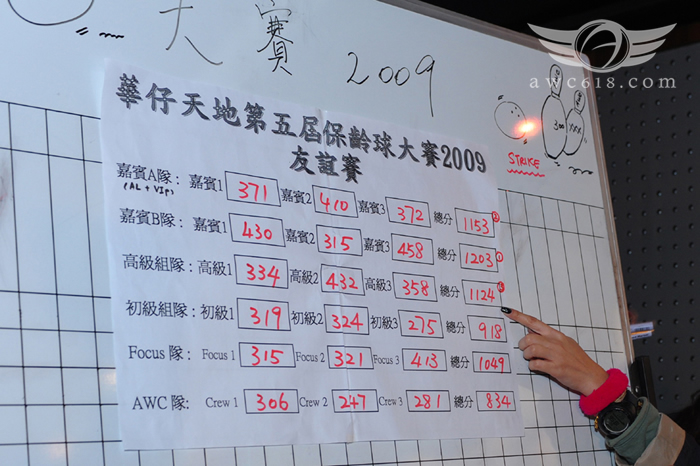 大賽 2009
awc618.com
300 XXX
STRIKE
華仔天地第五屆保齡球大賽2009
友誼賽
嘉賓A隊: 嘉賓1 371 嘉賓2 410 嘉賓3 372 總分 1153 ②
(AL + VIP)
嘉賓B隊: 嘉賓1 430 嘉賓2 315 嘉賓3 458 總分 1203 ①
高級組隊: 高級1 334 高級2 432 高級3 358 總分 1124 ③
初級組隊: 初級1 319 初級2 324 初級3 275 總分 918
Focus 隊: Focus 1 315 Focus 2 321 Focus 3 413 總分 1049
AWC 隊: Crew 1 306 Crew 2 247 Crew 3 281 總分 834